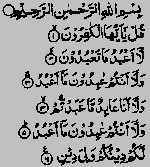 بِسْمِ اللَّهِ الرَّحْمَٰنِ الرَّحِيمِ
قُلْ يَا أَيُّهَا الْكَافِرُونَ ١
لَا أَعْبُدُ مَا تَعْبُدُونَ ٢
وَلَا أَنْتُمْ عَابِدُونَ مَا أَعْبُدُ ٣
وَلَا أَنَا عَابِدٌ مَا عَبَدْتُمْ ٤
وَلَا أَنْتُمْ عَابِدُونَ مَا أَعْبُدُ ٥
لَكُمْ دِينُكُمْ وَلِيَ دِينِ ٦